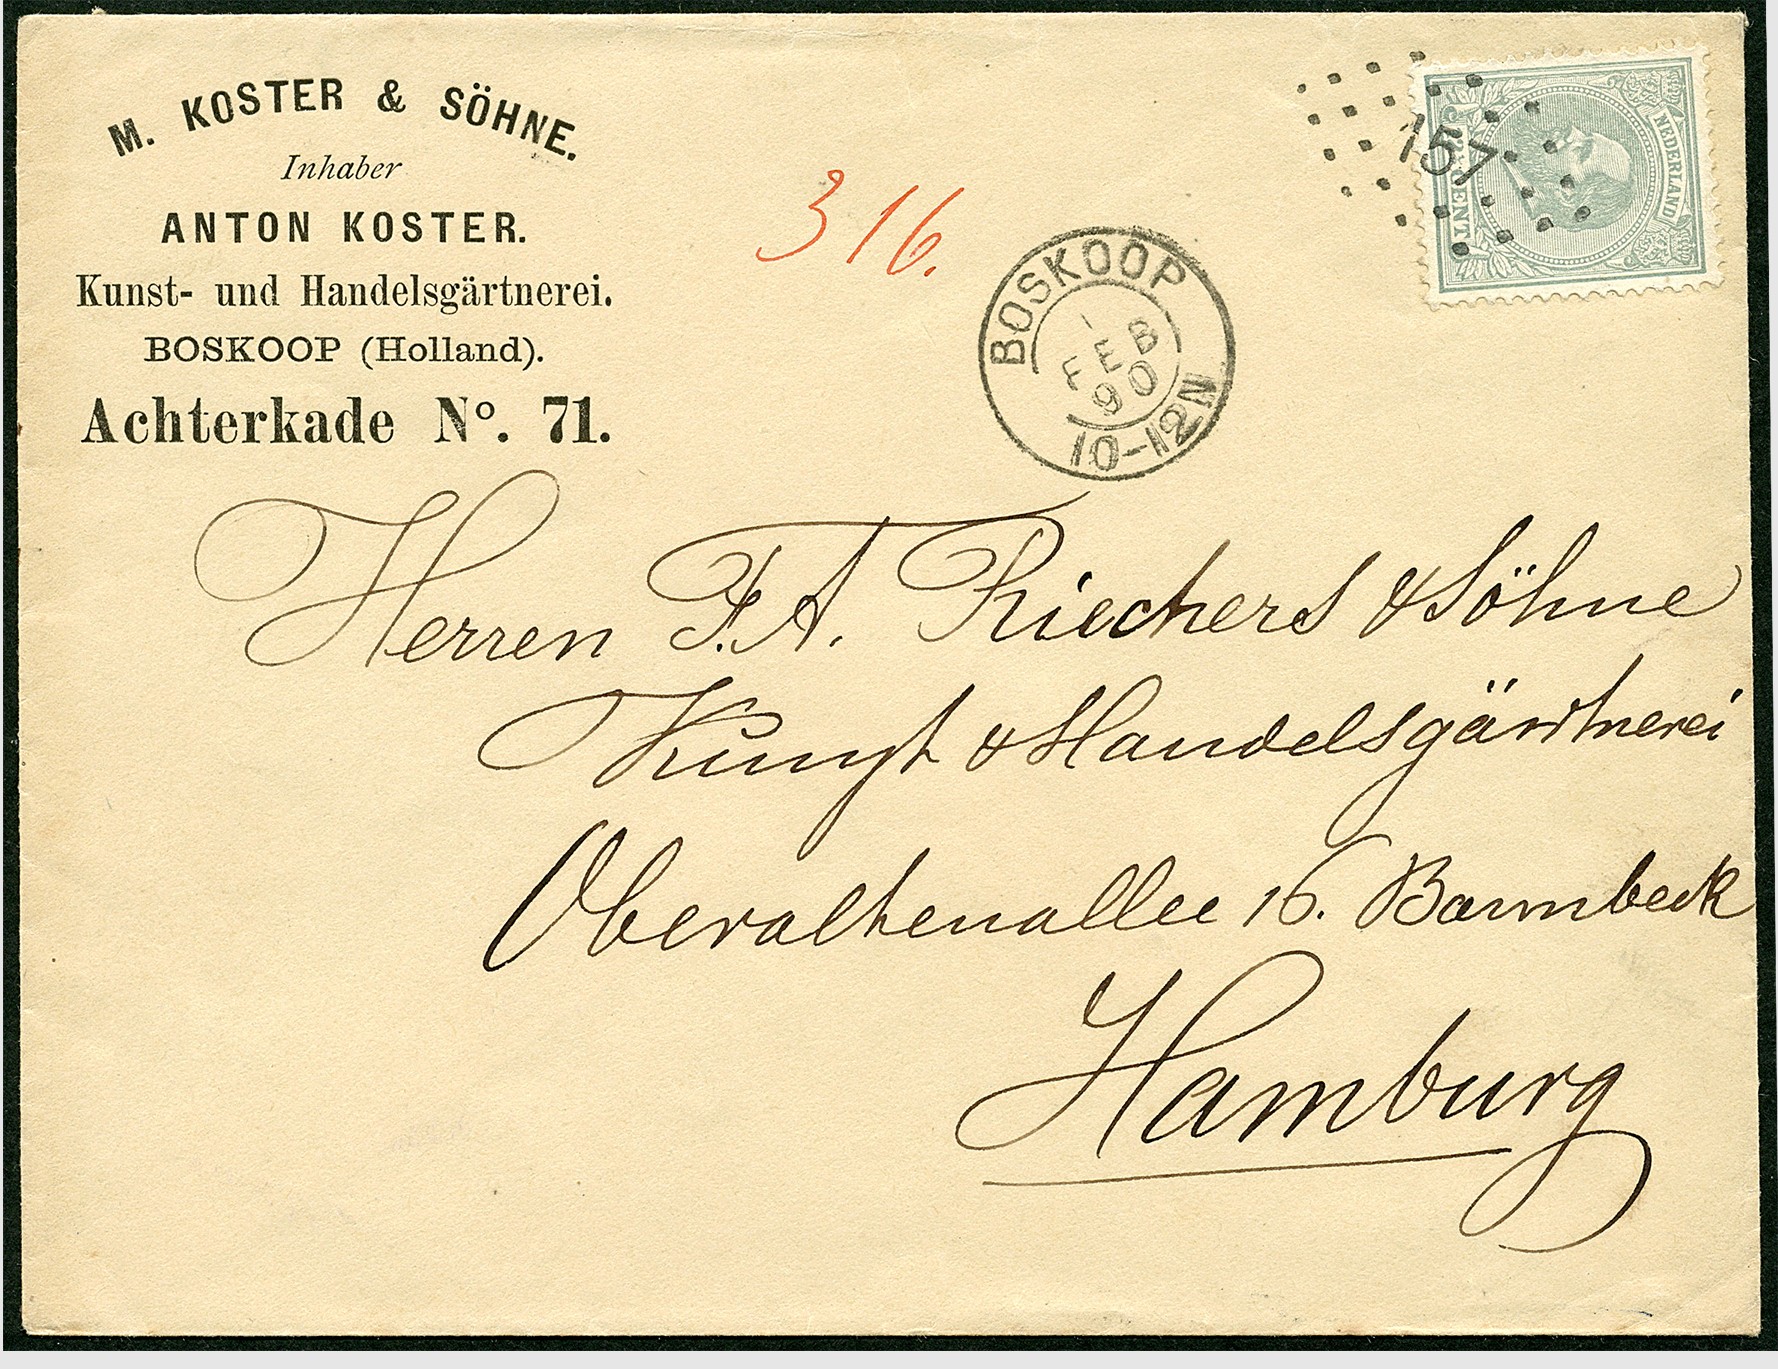 M. KOSTER & SÖHNE.
Inhaber
ANTON KOSTER.
Kunst- und Handelsgärtnerei.
BOSKOOP (Holland).
Achterkade Nº. 71.
316.
BOSKOOP
FEB
90
10-12N
157
NEDERLAND
CENT
Herren F. A. Riechers & Söhne
Kunst & Handelsgärtnerei
Oberaltenallee 16. Barmbeck
Hamburg